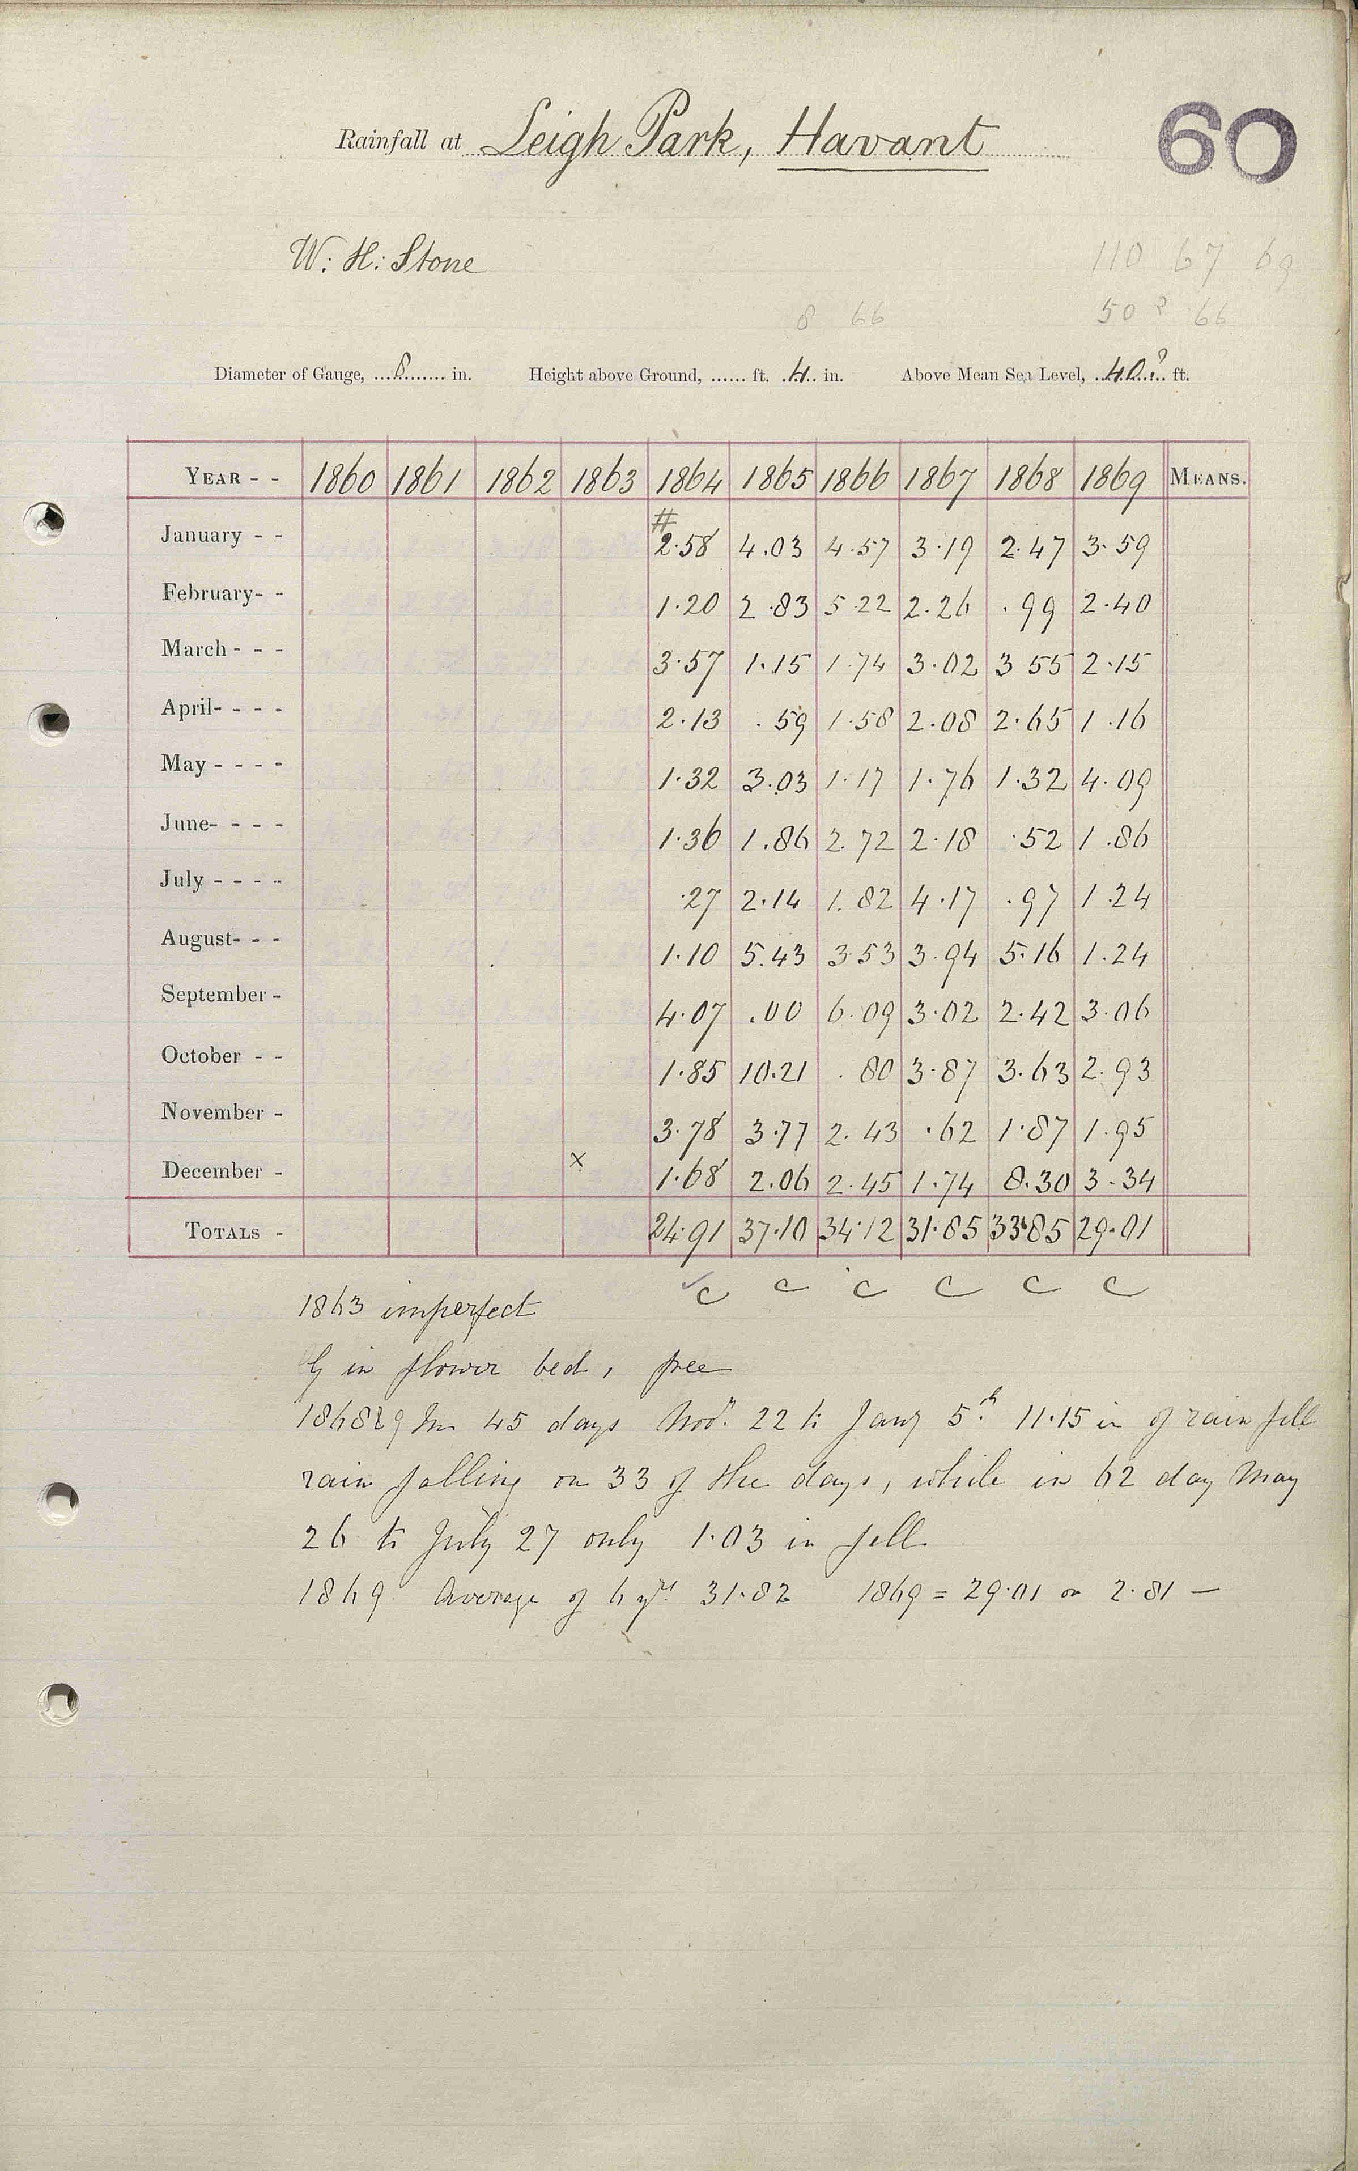 Rainfall at Leigh Park, Havant
60
W. H. Stone
110 67 69
8 66 50? 66
Diameter of Gauge, 8 in. Height above Ground, ...... ft. 4 in. Above Mean Sea Level, 40? ft.
YEAR - - 1860 1861 1862 1863 1864 1865 1866 1867 1868 1869 MEANS.
#
January - - 2.58 4.03 4.57 3.19 2.47 3.59
February- - 1.20 2.83 5.22 2.26 .99 2.40
March - - - 3.57 1.15 1.74 3.02 3 55 2.15
April- - - - 2.13 .59 1.58 2.08 2.65 1.16
May - - - - 1.32 3.03 1.17 1.76 1.32 4.09
June- - - - 1.36 1.86 2.72 2.18 .52 1.86
July - - - - .27 2.14 1.82 4.17 .97 1.24
August- - - 1.10 5.43 3.53 3.94 5.16 1.24
September - 4.07 .00 6.09 3.02 2.42 3.06
October - - 1.85 10.21 .80 3.87 3.63 2.93
November - 3.78 3.77 2.43 .62 1.87 1.95
December - x 1.68 2.06 2.45 1.74 8.30 3.34
TOTALS - 24.91 37.10 34.12 31.85 33.85 29.01
✓c c c c c c
1863 imperfect
G in flower bed, free
1868&9 In 45 days Novr. 22 to Jany 5th 11.15 in of rain fell
rain falling on 33 of the days, while in 62 day May
26 to July 27 only 1.03 in fell
1869 Average of 6 yrs 31.82 1869 = 29.01 or 2.81 —